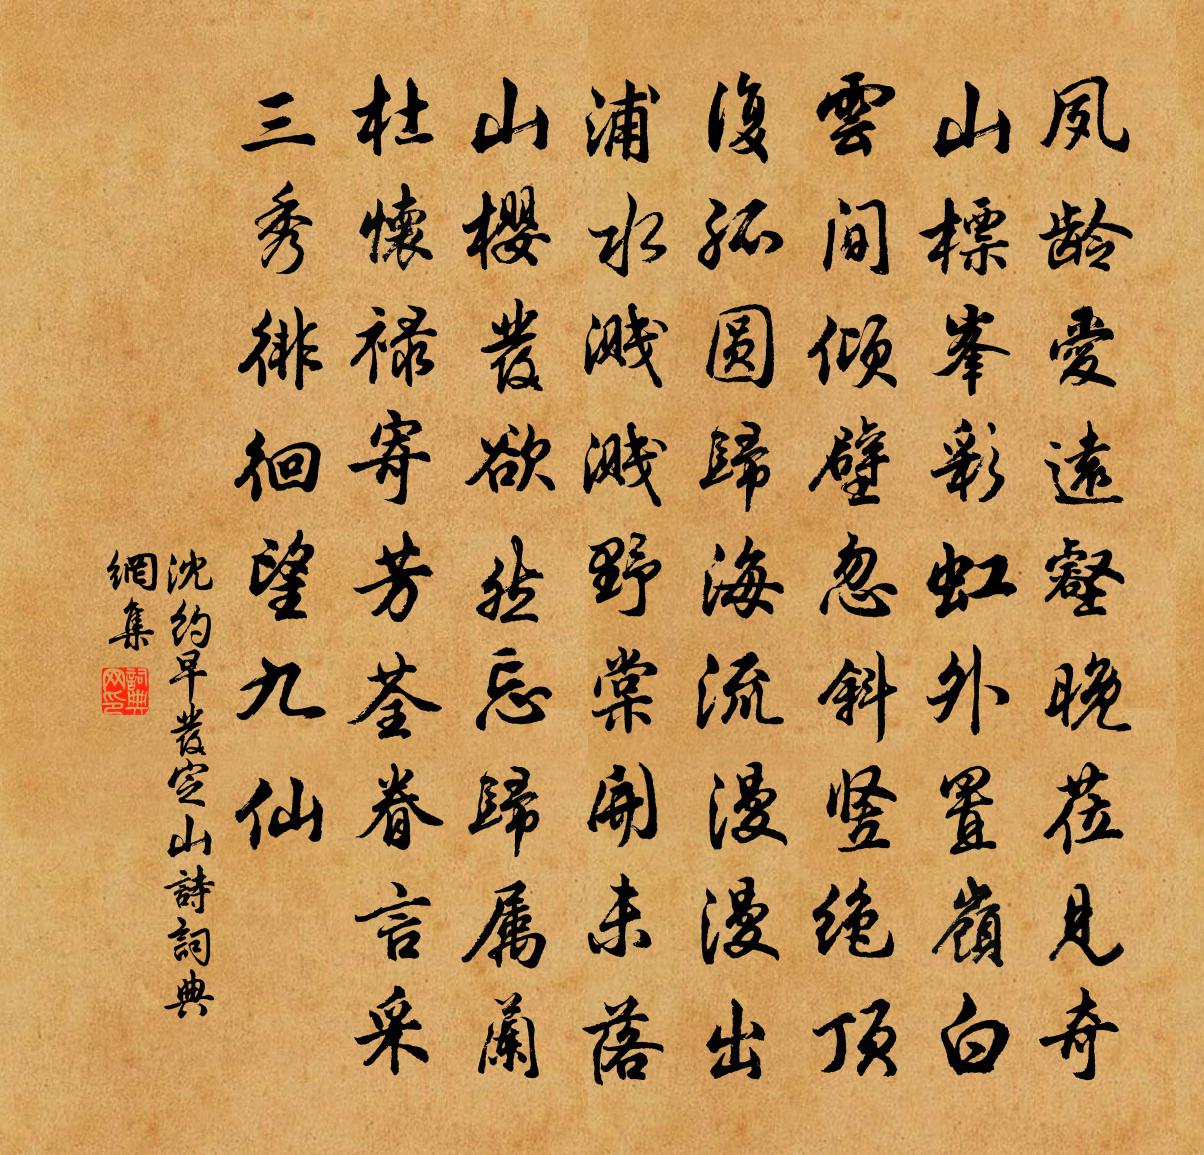 夙龄愛遠壑晚莅見奇
山標峯彩虹外置嶺白
雲間傾壁忽斜竖绝頂
復孤圆歸海流漫漫出
浦水濺濺野棠開未落
山櫻發欲然忘歸属蘭
杜懷禄寄芳荃眷言采
三秀徘徊望九仙
沈約早發定山詩詞典
網集
詞典
网印